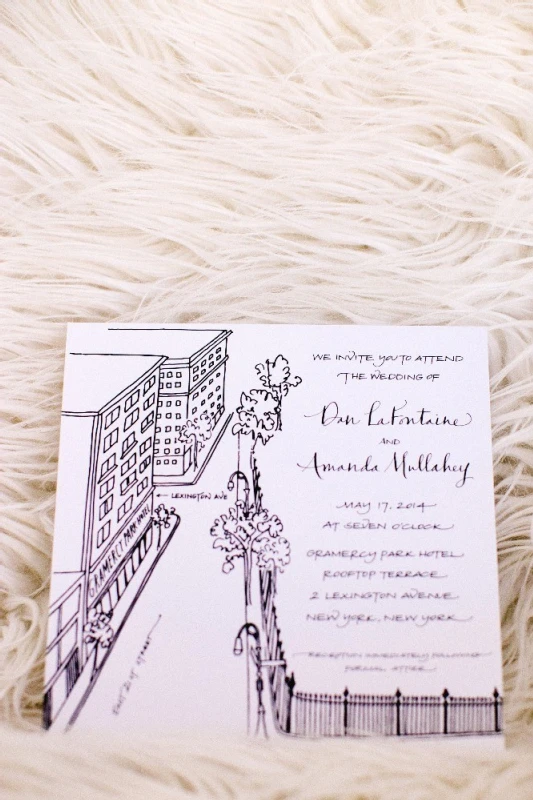 WE INVITE YOU TO ATTEND
THE WEDDING OF
Dan LaFontaine
AND
Amanda Mullahey
MAY 17, 2014
AT SEVEN O'CLOCK
GRAMERCY PARK HOTEL
ROOFTOP TERRACE
2 LEXINGTON AVENUE
NEW YORK, NEW YORK
RECEPTION IMMEDIATELY FOLLOWING
FORMAL ATTIRE
← LEXINGTON AVE
GRAMERCY PARK HOTEL
EAST 21ST STREET